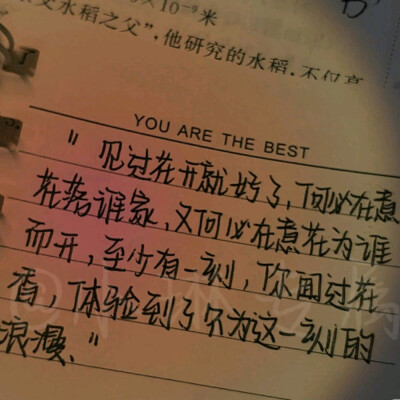 ×10⁻⁹米
水稻之父",他研究的水稻,不仅高
YOU ARE THE BEST
"见过花开就好了,何必在意
花落谁家,又何必在意花为谁
而开,至少有一刻,你闻过花
香,体验到了只为这一刻的
浪漫."